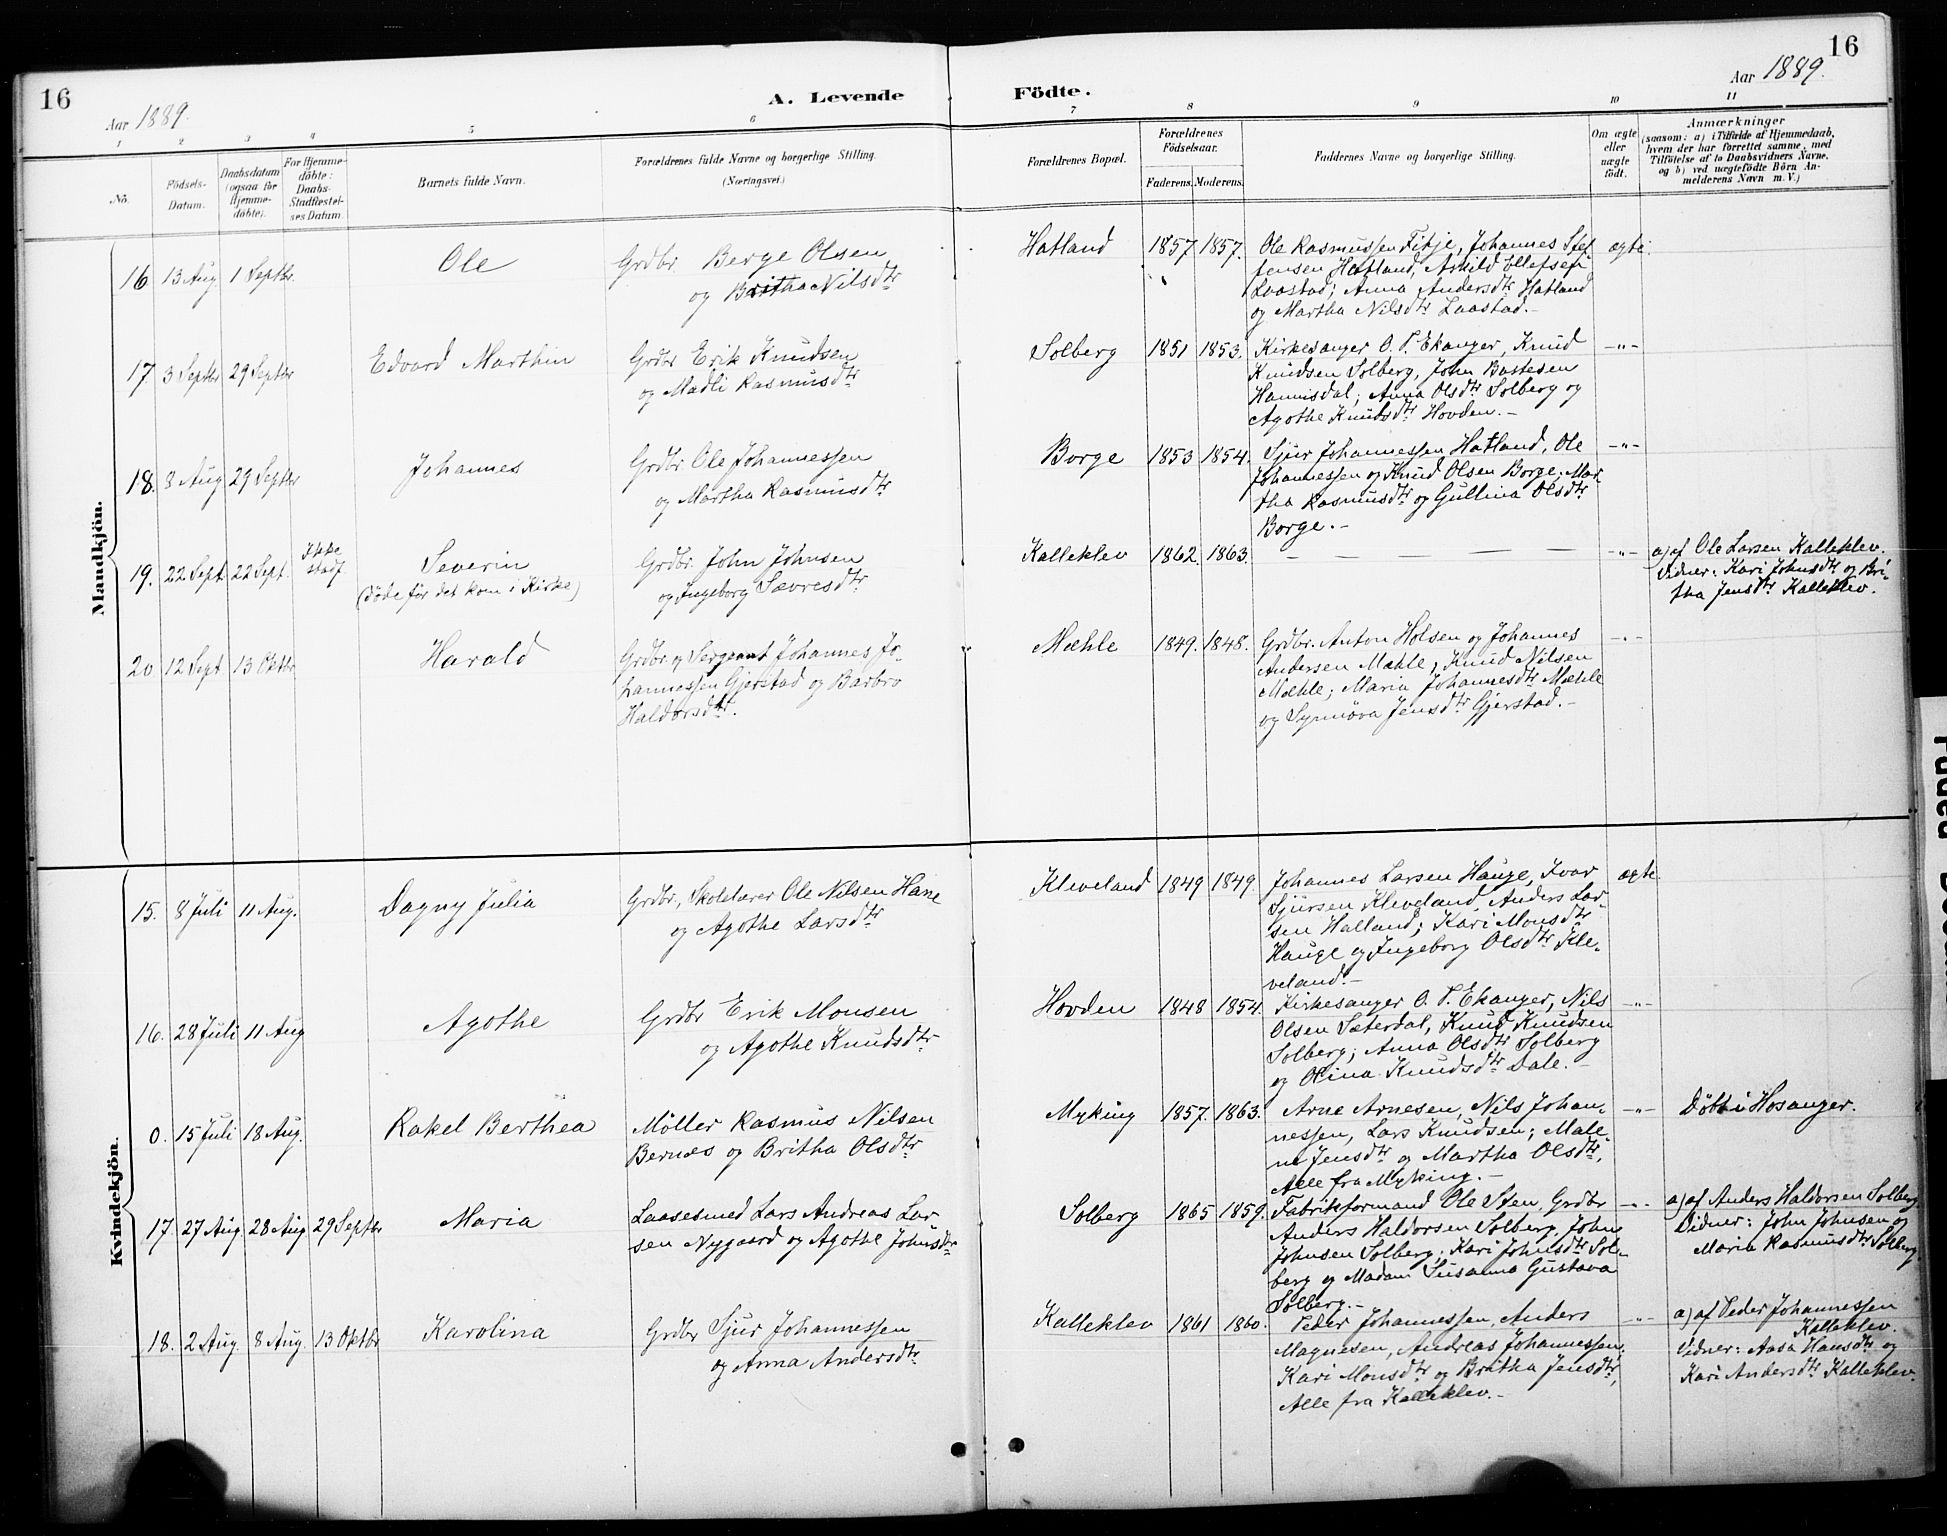 16
Aar 1889.
A. Levende
Födte.
16
Aar 1889.
1
2
3
4
5
6
7
8
9
10
11
No.
Födsels-
Datum.
Daabsdatum
(ogsaa for
Hjemme-
döbte).
For Hjemme-
döbte:
Daabs-
Stadfæstel-
ses Datum.
Barnets fulde Navn.
Forældrenes fulde Navne og borgerlige Stilling.
(Næringsvei.)
Forældrenes Bopæl.
Forældrenes
Födselsaar.
Faderens.
Moderens.
Faddernes Navne og borgerlige Stilling.
Om ægte
eller
uægte
født.
Anmærkninger
(saasom: a) i Tilfælde af Hjemmedaab,
hvem der har forrettet samme, med
Tilföielse af to Daabsvidners Navne.
og b) ved uægtefödte Börn An-
melderens Navn m. V.)
Mandkjön.
16 13 Aug 1 Septbr. Ole
Grdbr. Berge Olsen
og Britha Nilsdtr
Hatland 1857 1857.
Ole Rasmussen Fitje, Johannes Stef
fensen Hatland, Arhild Ellefsen
Laastad; Anna Andersdtr Hatland
og Martha Nilsdtr Laastad.-
ægte
17 3 Septbr 29 Septbr Edvard Marthin
Grdbr Erik Knudsen
og Madli Rasmusdtr
Solberg 1851 1853.
Kirkesanger O. T. Ekanger, Knud
Knudsen Solberg, John Bastesen
Hannisdal; Anna Olsdtr Solberg og
Agothe Knudsdtr Hovden.-
-"-
18. 8 Aug 29 Septbr Johannes
Grdbr. Ole Johannessen
og Martha Rasmusdtr
Borge 1853 1854.
Sjur Johannessen Hatland, Ole
Johannessen og Knud Olsen Borge; Mar-
tha Rasmusdtr og Gullina Olsdtr
Borge.-
-"-
19. 22 Sept. 22 Sept. Ikke
stadf.
Severin
(döde för det kom i Kirke)
Grdbr. John Johnsen
og Ingeborg Sævresdtr
Kalleklev 1862. 1863.
- - - - - - -
-"-
a) af Ole Larsen Kalleklev.
Vidner: Kari Johnsdtr og Bri-
tha Jensdtr Kalleklev.
20 12 Sept. 13 Oktbr Harald
Grdbr. og Sergeant Johannes Jo-
hannessen Gjerstad og Barbro
Haldorsdtr.
Mæhle 1849. 1848.
Grdbr. Anton Holsen og Johannes
Andersen Mæhle, Knud Nilsen
Mæhle; Maria Johannesdtr Mæhle
og Synnöva Jensdtr Gjerstad.-
-"-
Kvindekjön.
15. 8 Juli 11 Aug. Dagny Julia
Grdbr., Skolelærer Ole Nilsen Hane
og Agothe Larsdtr
Kleveland 1849 1849.
Johannes Larsen Hauge, Ivar
Sjursen Kleveland, Anders Lar-
sen Halland; Kari Monsdtr
Hauge og Ingeborg Olsdtr Kle-
veland.-
ægte.
16. 28 Juli 11 Aug Agothe
Grdbr Erik Monsen
og Agothe Knudsdtr
Hovden 1848 1854.
Kirkesanger O. T. Ekanger, Nils
Olsen Sæterdal, Knud Knudsen
Solberg; Anna Olsdtr Solberg
og Olina Knudsdtr Dale.-
-"-
0. 15 Juli 18 Aug. Rakel Berthea
Möller Rasmus Nilsen
Bernes og Britha Olsdtr
Myking 1857. 1863.
Arne Arnesen, Nils Johan-
nessen, Lars Knudsen; Male-
ne Jensdtr og Martha Olsdtr,
Alle fra Myking.-
-"-
Döbt i Hosanger.
17. 27 Aug 28 Aug 29 Septbr Maria
Laasesmed Lars Andreas Lar
sen Nygaard og Agothe Johnsdtr
Solberg 1865 1859.
Fabrikformand Ole Sten, Grdbr
Anders Haldorsen Solberg, John
Johnsen Solberg; Kari Johnsdtr Sol-
berg og Madam Susanna Gustava
Solberg.-
-"-
a) af Anders Haldorsen Solberg
Vidner: John Johnsen og
Maria Rasmusdtr Solberg.
18. 2 Aug. 8 Aug. 13 Oktbr Karolina
Grdbr Sjur Johannessen
og Anna Andersdtr
Kalleklev 1861 1860.
Peder Johannessen, Anders
Magnesen, Andreas Johannessen;
Kari Monsdtr og Britha Jensdtr,
Alle fra Kalleklev.-
-"-
a) af Peder Johannessen
Kalleklev.
Vidner: Aasa Hansdtr og
Kari Andersdtr Kalleklev.